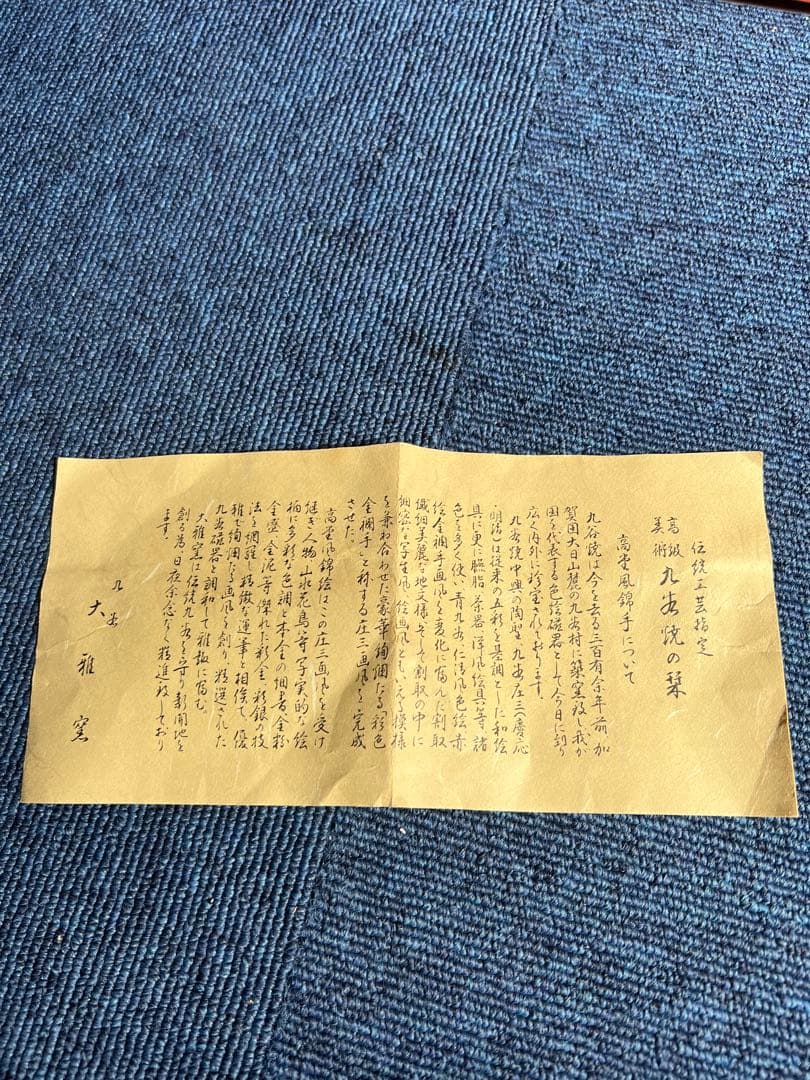 伝統工芸指定
高級
美術 九谷焼の栞
高堂風錦手について
九谷焼は今を去る三百有余年前加
賀国大日山麓の九谷村に築窯致し我が
国を代表する色絵磁器として今日に到り
広く内外に珍重されております。
九谷焼中興の陶聖 九谷庄三(慶応
明治)は従来の五彩を基調とした和絵
具に更に臙脂 茶器 洋風絵具等 諸
色を多く使い 青九谷 仁清風色絵 赤
絵金襴手画風を変化に富んだ割取
繊細美麗な地文様 そして割取の中に
細密な写生風絵画風ともいえる模様
を兼ね合わせた豪華絢爛たる「彩色
金襴手」と称する庄三画風を完成
させた。
高堂風錦絵はこの庄三画風を受け
継ぎ人物 山水 花鳥等 写実的な絵
柄に多彩な色調と本金の細書 金粉
金盛 金泥等 傑れた彩金 彩銀の技
法を網羅し 精緻な運筆と相俟て 優
雅で絢爛たる画風を創り 精選された
九谷磁器と調和して 雅趣に富む。
大雅窯は伝統九谷を守り 新開地を
創る為 日夜余念なく精進致しており
ます。
九谷
大雅窯